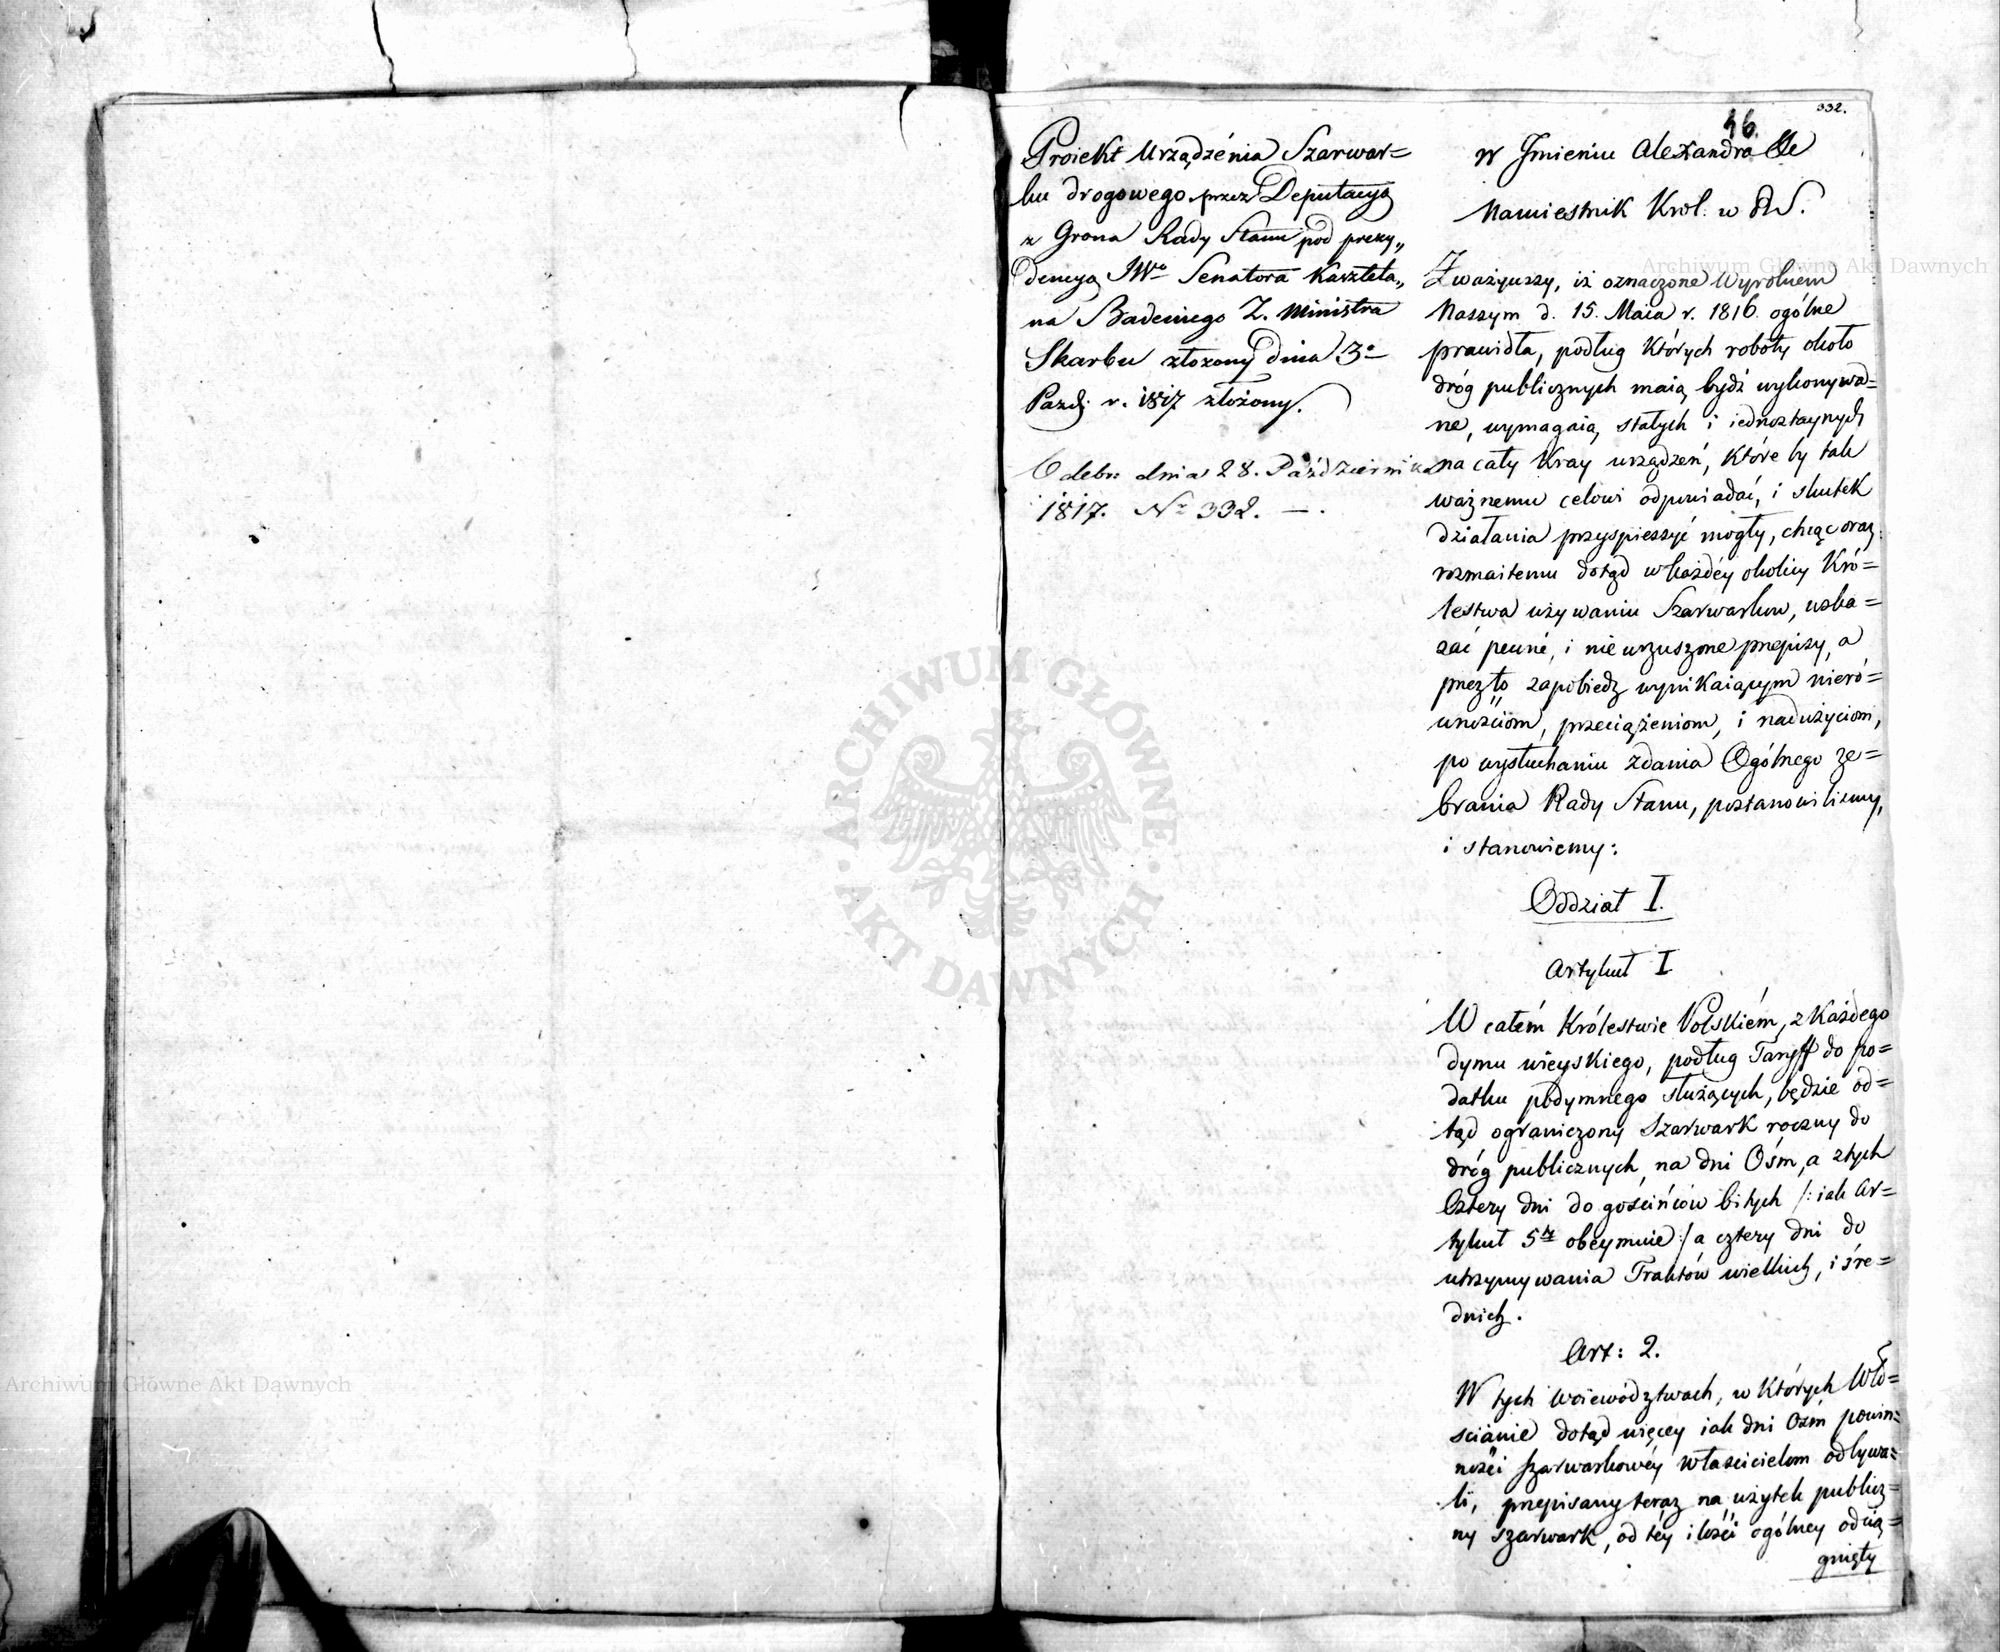 332.
46.
Proiekt Urządzénia Szarwar=
ku drogowego przez Deputacyą
z Grona Rady Stanu pod prezy„
dencyą JWo Senatora Kasztela„
na Badeniego Z. Ministra
Skarbu złożony dnia 3o
Paźdz: r. 1817 złożony.
Odebr: dnia 28. Październik
1817. No 332. —.
W Jmieniu Alexandra &c
Namiestnik Król. w RS.
Zważywszy, iż oznaczone Wyrokiem
Naszym d. 15. Maia r. 1816 ogólne
prawidła, podług których roboty około
dróg publicznych maią bydź wykonywa=
ne, wymagaią, stałych i iednostaynych
na cały Kray urządzeń, które by tak
ważnemu celowi odpowiadać, i skutek
działania przyspieszyć mogły, chcąc oraz
rozmaitemu dotąd w każdéy okolicy Kró=
lestwa używaniu Szarwarków, wska=
zać pewné, i niewzruszone przepisy, a
przezto zapobiedz wynikaiącym nieró=
wnościom, przeciążeniom, i nadużyciom,
po wysłuchaniu zdania Ogólnego ze=
brania Rady Stanu, postanowiliśmy,
i stanowiemy:
Oddział I.
Artykuł I
W całém Królestwie Polskiém, z każdego
dymu wieyskiego, podług Taryff do po=
datku podymnego służących, będzie od=
tąd ograniczony Szarwark roczny do
dróg publicznych, na dni Ośm, a z tych
Cztery dni do gościńców bitych /: iak Ar=
tykuł 5ty obeymuie :/ a cztery dni do
utrzymywania Traktów wielkich, i śre=
dnich.
Art: 2.
W tych Woiewództwach, w których Wło=
scianie dotąd więcey iak dni Ośm powin=
ności szarwarkowéy Właścicielom odbywa=
li, przepisany teraz na użytek publicz=
ny szarwark, od téy ilości ogólney odcią=
gnięty
Archiwum Główne Akt Dawnych
Archiwum Główne Akt Dawnych
ARCHIWUM GŁÓWNE
AKT DAWNYCH